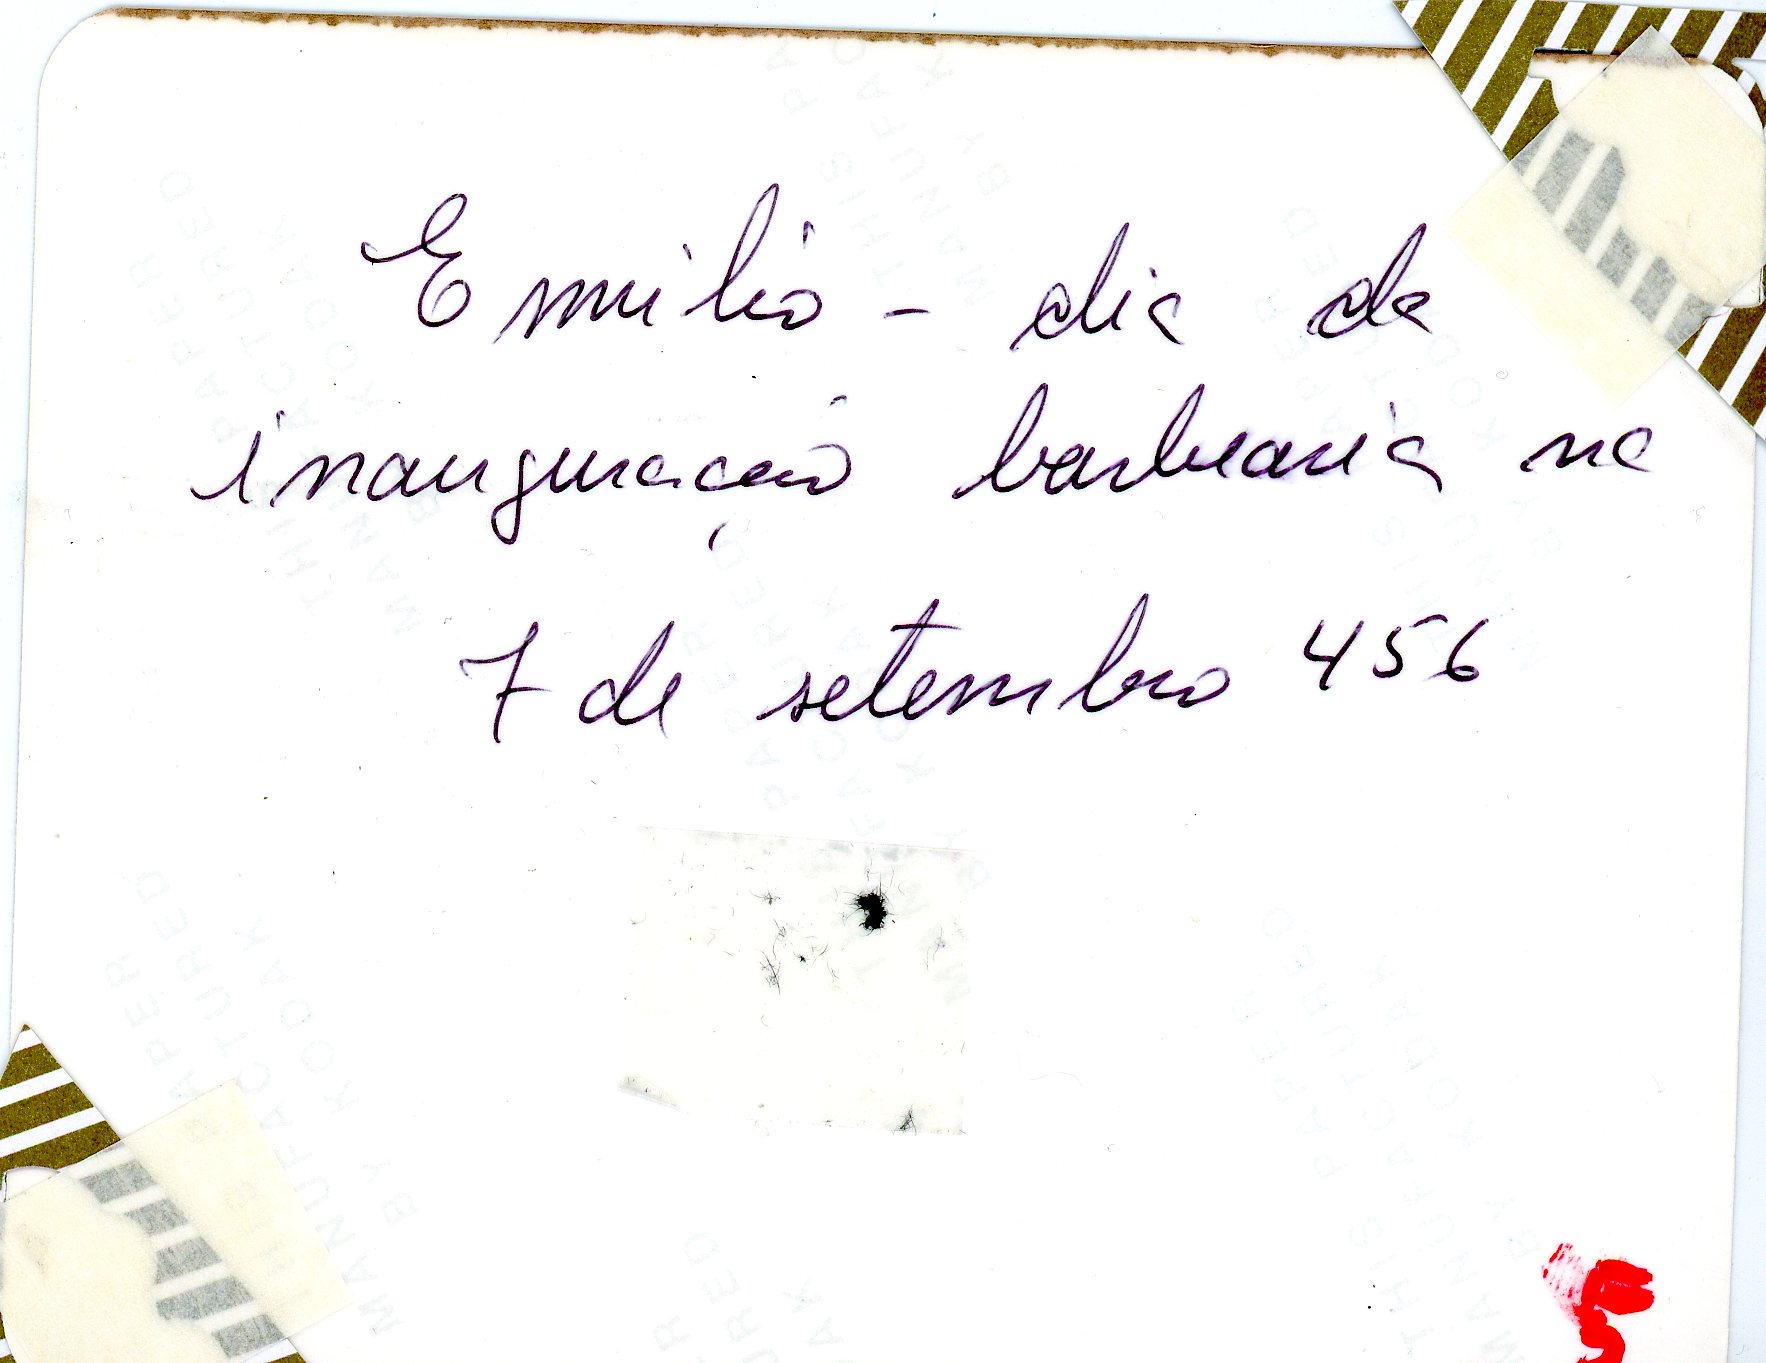 Emilio - dia da
inauguração barbearia na
7 de setembro 456
THIS PAPER
MANUFACTURED
BY KODAK